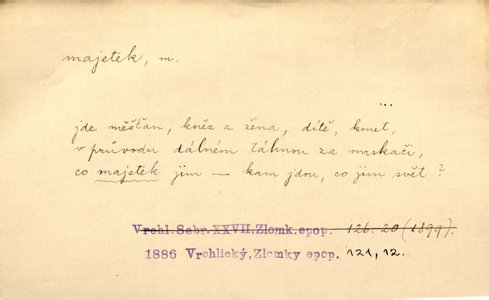 majetek, m.
...
jde měšťan, kněz a žena, dítě, kmet,
v průvodu dálném táhnou za mrskači,
co majetek jim — kam jdou, co jim svět?
Vrchl. Sebr. XXVII. Zlomk. epop. 126. 20 (1899).
1886 Vrchlický, Zlomky epop. 121, 12.